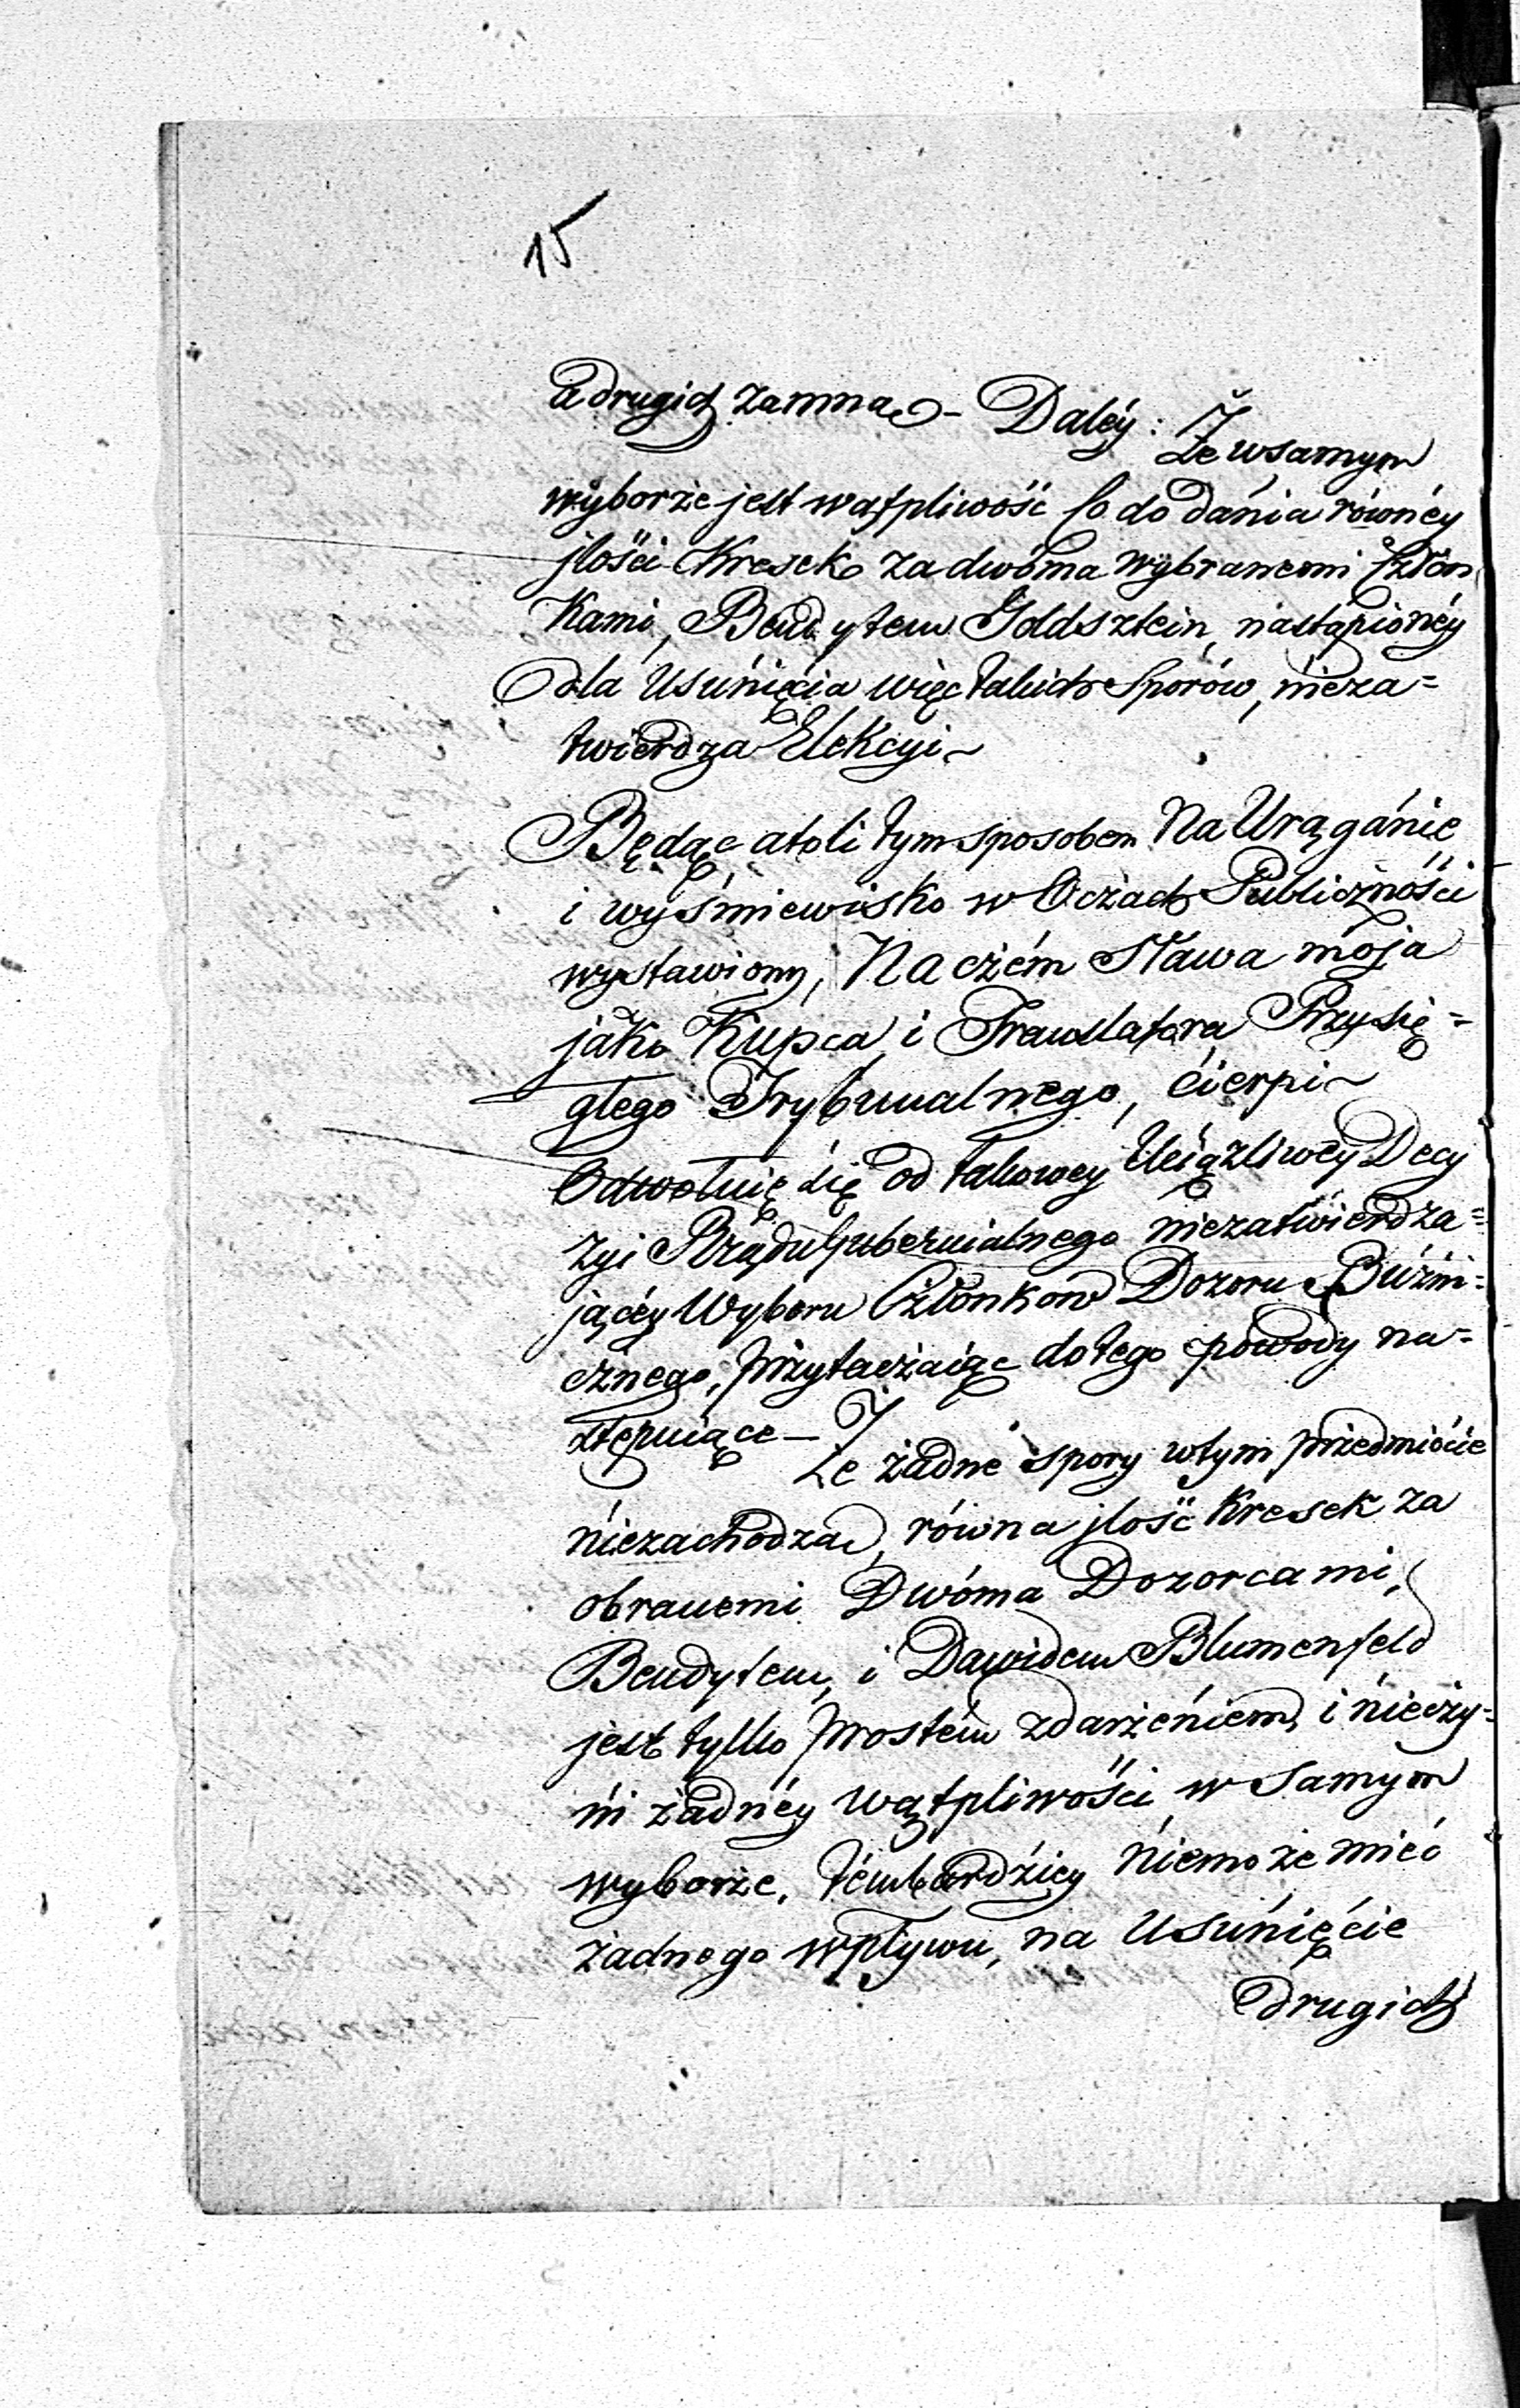 15
a drugich zamna – Daléy: Że wsamym
wyborze jest wątpliwość co do dánia równéy
jlości Kresek za dwóma wybranemi Człon
Kami, Bendytem Goldsztein, nastąpionéy
dla Usuńięcia więc takich Sporów, nieza=
twierdza Elekcyi ~
Będąc atoli tym sposobem Na Urągánie
i wyśmiewisko w Oczach Publiczności
wystawiony, Na czém Sława moja
jako Kupca i Translatora Przysię=
głego Trybunalnego, cierpi ~
Odwołuię się od takowey Uciążliwéy Decy
zyi Rządu Gubernialnego niezatwierdza=
jącéy Wyboru Członków Dozoru Bóźni=
cznego, przytaczaiąc do tego powody na=
stępuiące – Że żadne spory wtym przedmiocie
niezachodzą, równa jlość Kresek za
obranemi Dwóma Dozorcami,
Bendytem, i Dawidem Blumenfeld
jest tylko prostém zdarzeńiem, i nieczy=
ńi żadnéy wątpliwości w Samym
wyborze, témbardźiey niemoże mieć
żadnego wpływu, na Usuńięcie
drugich